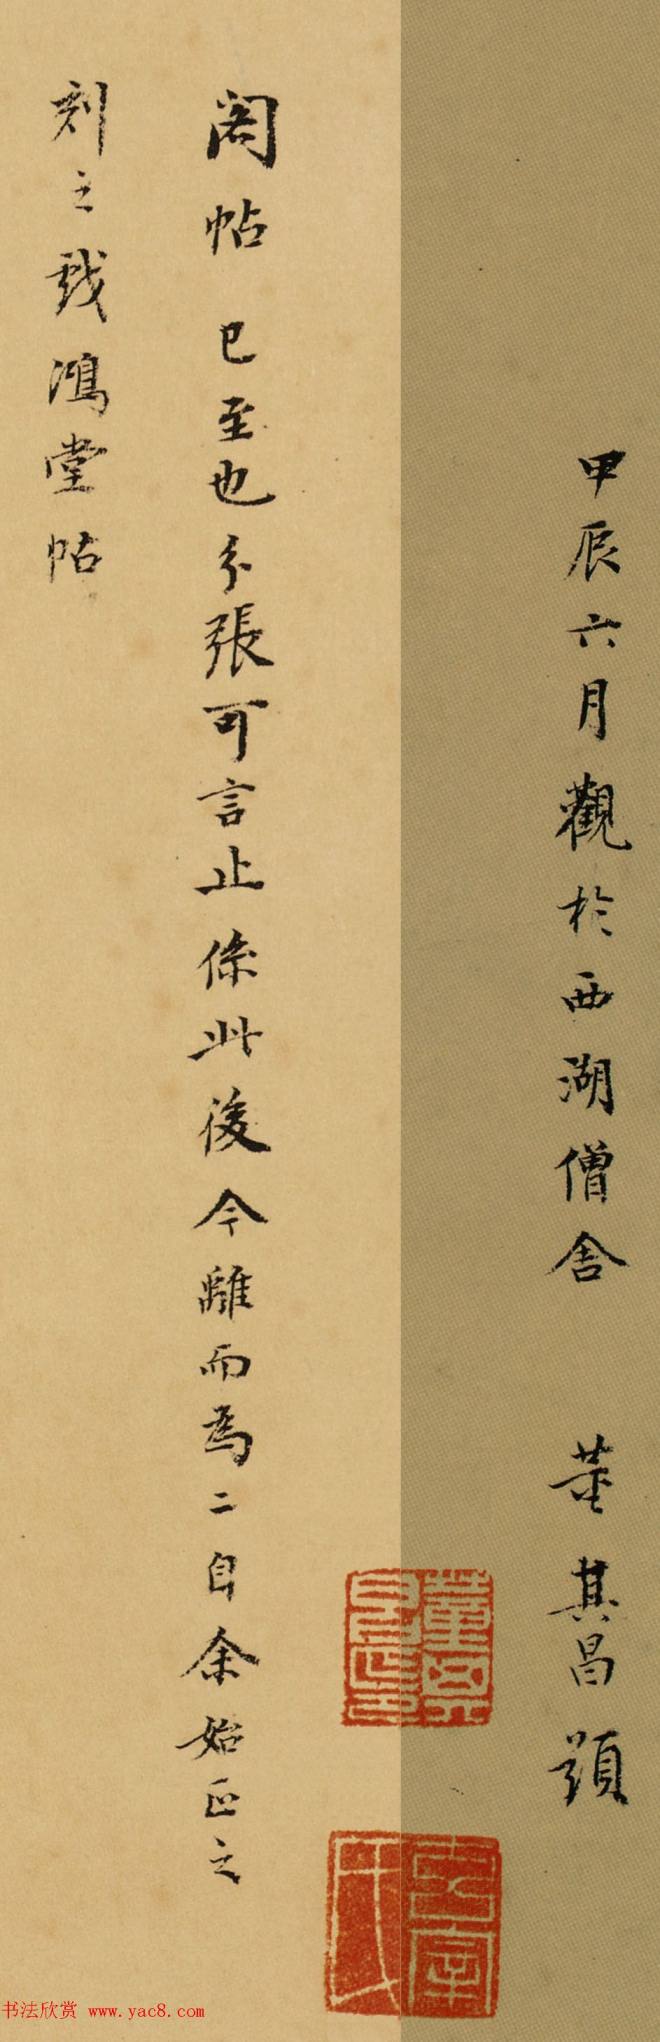 甲辰六月觀於西湖僧舍 董其昌題
閣帖已至也分張可言止係此後今離而為二自余始正之
刻之戲鴻堂帖
董其昌印
书法欣赏 www.yac8.com